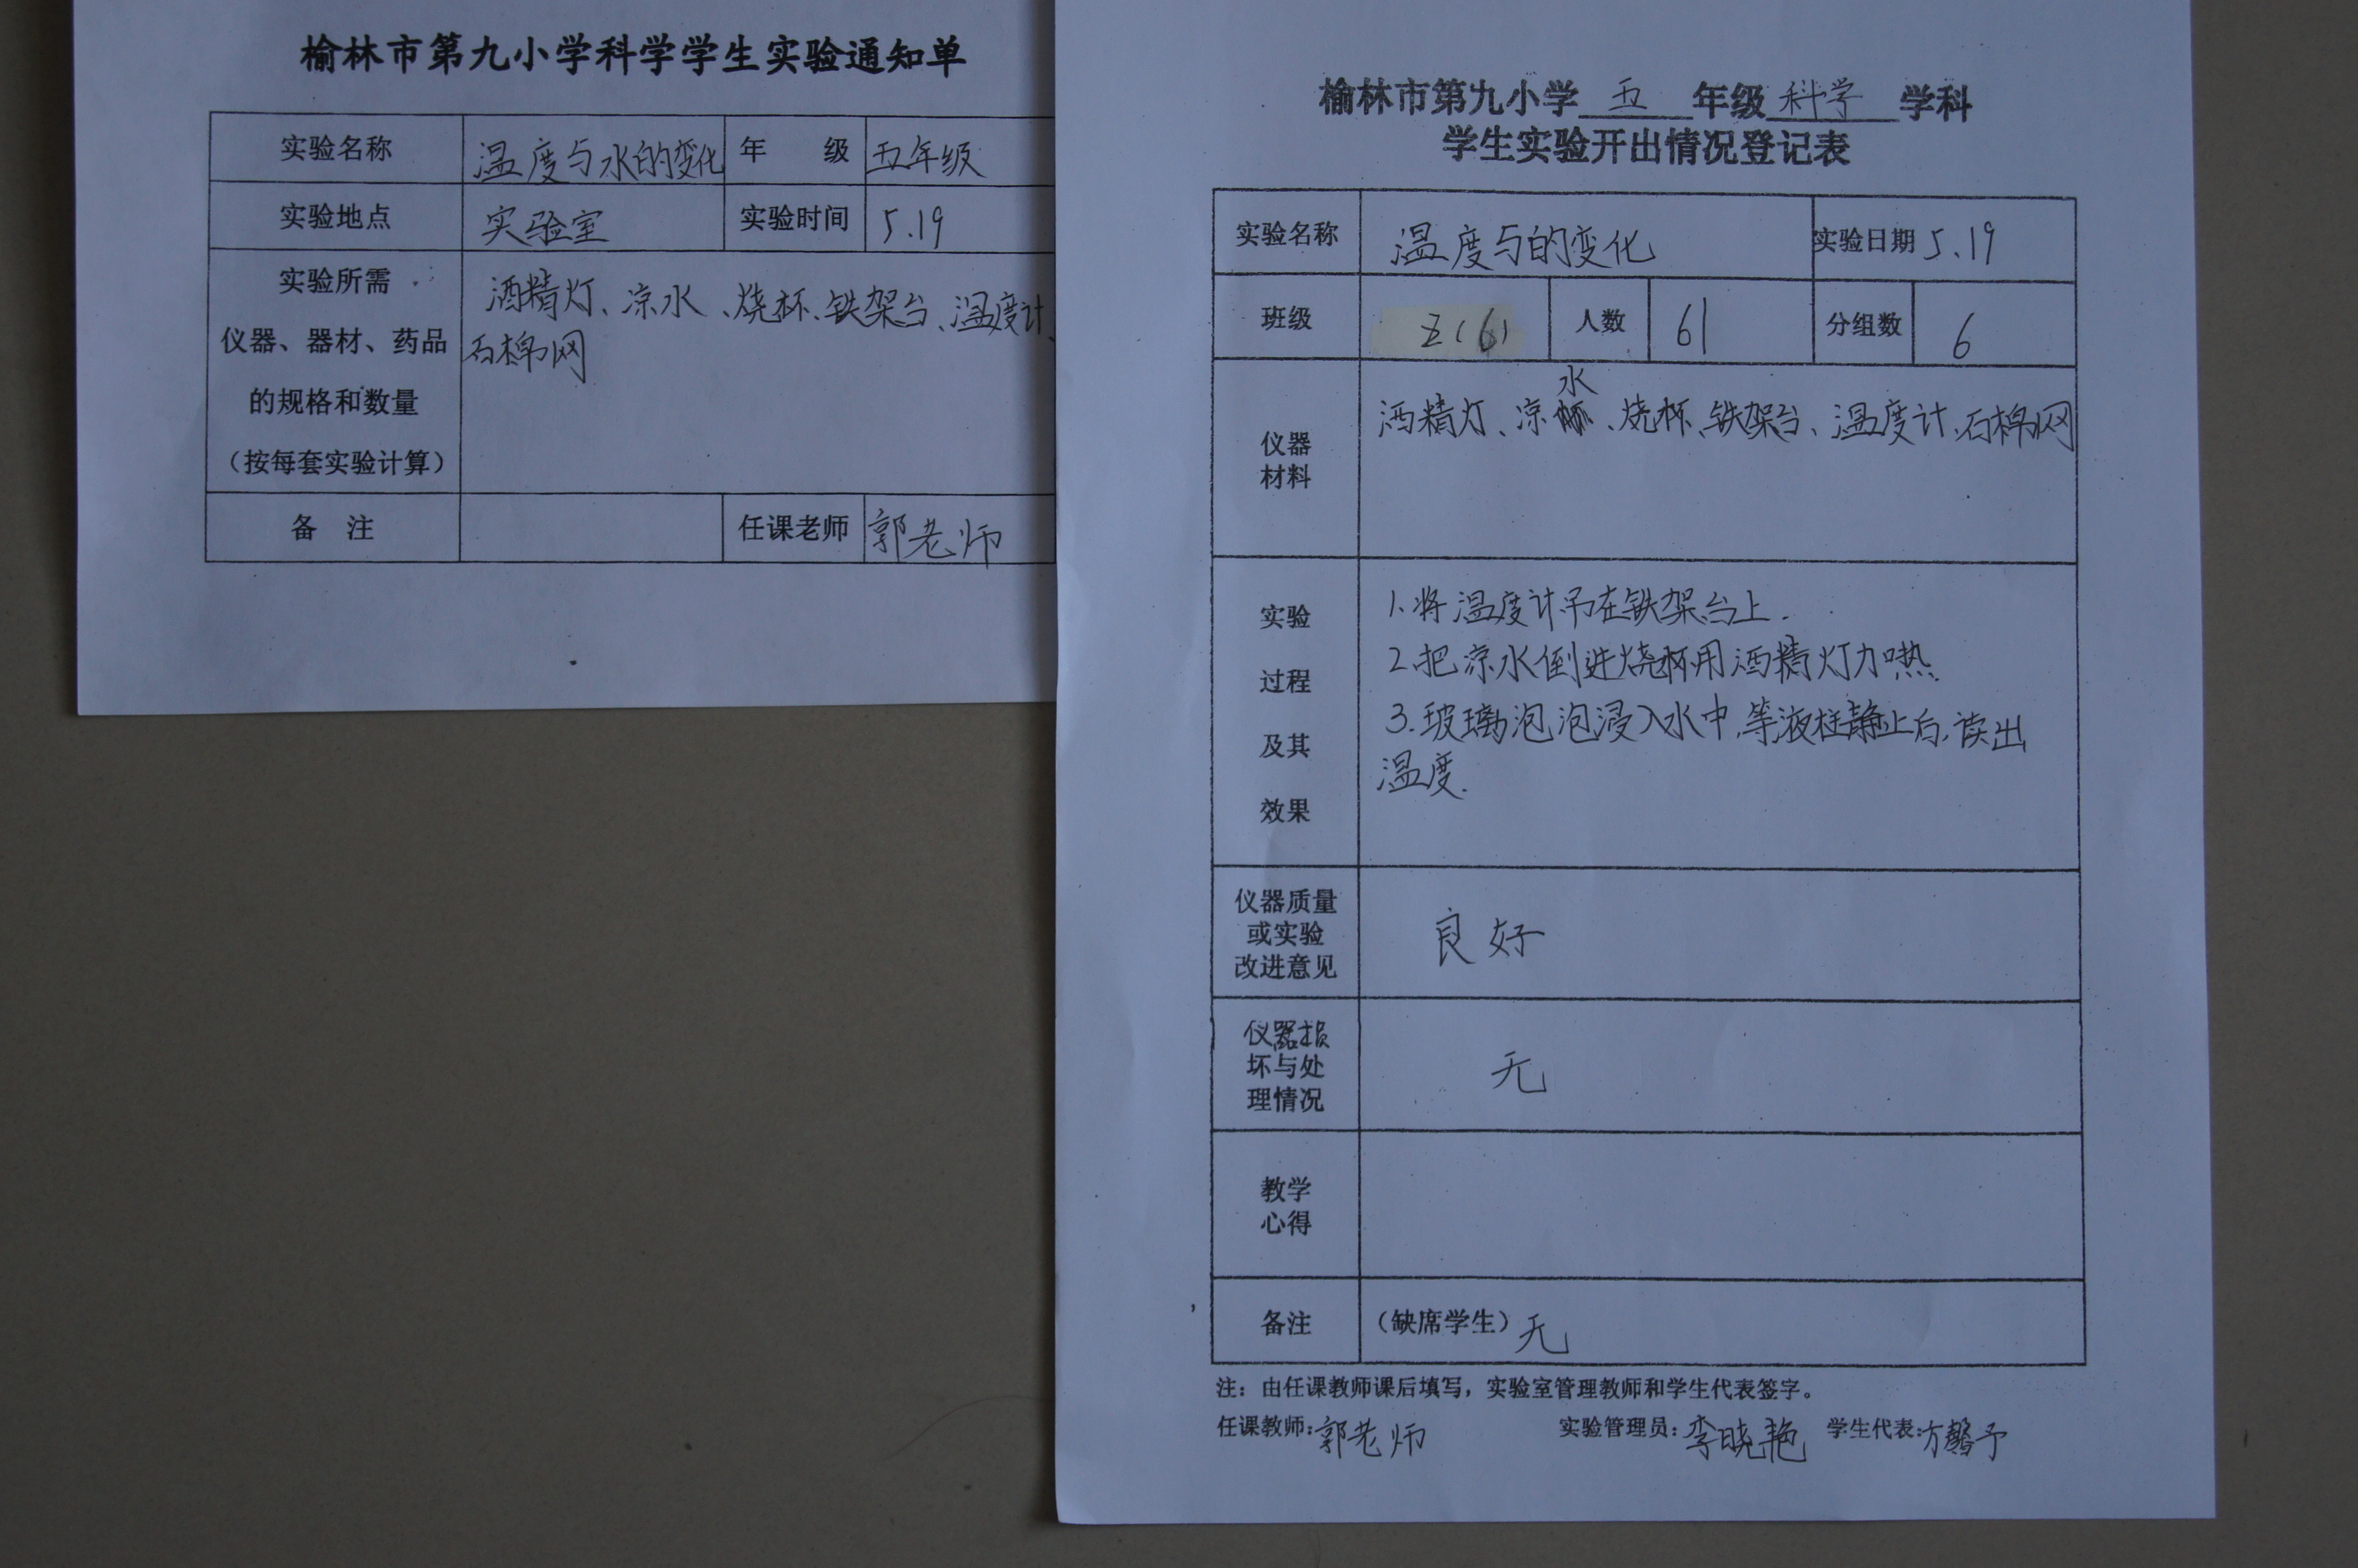 榆林市第九小学科学学生实验通知单
实验名称 温度与水的变化 年 级 五年级
实验地点 实验室 实验时间 5.19
实验所需
仪器、器材、药品
的规格和数量
（按每套实验计算）
酒精灯、凉水、烧杯、铁架台、温度计、
石棉网
备 注 任课老师 郭老师
榆林市第九小学 五 年级 科学 学科
学生实验开出情况登记表
实验名称 温度与的变化 实验日期 5.19
班级 五(6) 人数 61 分组数 6
仪器
材料
酒精灯、凉水、烧杯、铁架台、温度计、石棉网
实验
过程
及其
效果
1.将温度计吊在铁架台上.
2.把凉水倒进烧杯用酒精灯加热.
3.玻璃泡泡浸入水中,等液柱静止后,读出
温度.
仪器质量
或实验
改进意见
良好
仪器损
坏与处
理情况
无
教学
心得
备注 （缺席学生）无
注：由任课教师课后填写，实验室管理教师和学生代表签字。
任课教师:郭老师 实验管理员:李晓艳 学生代表:方馨予